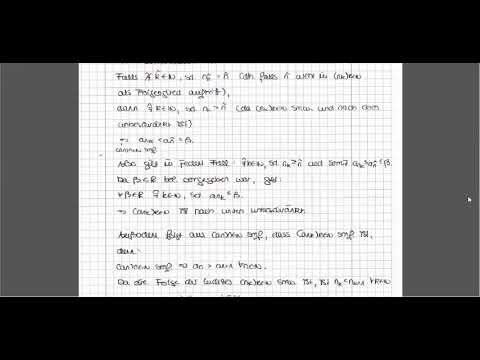 Falls ∄ k̂∈ℕ, sd. n_k̂ = n̂ (dh. falls n̂ nicht in (n_k)_{k∈ℕ}
als Folgenglied auftritt),
dann ∃ k∈ℕ, sd. n_k > n̂ (da (n_k)_{k∈ℕ} smw. und nach oben
unbeschränkt ist)
⇒ a_{n_k} < a_n̂ ≤ β.
(a_n)_{n∈ℕ} smf
Also gilt in jedem Fall: ∃ k∈ℕ, sd. n_k ≥ n̂ und somit a_{n_k} ≤ a_n̂ ≤ β.
Da β∈ℝ bel. vorgegeben war, gilt:
∀β∈ℝ ∃ k∈ℕ, sd. a_{n_k} ≤ β.
⇒ (a_{n_k})_{k∈ℕ} ist nach unten unbeschränkt.
Außerdem folgt aus (a_n)_{n∈ℕ} smf, dass (a_{n_k})_{k∈ℕ} smf ist,
denn:
(a_n)_{n∈ℕ} smf ⇒ a_n > a_{n+1} ∀n∈ℕ.
Da die Folge der Indizes (n_k)_{k∈ℕ} smw ist, ist n_k < n_{k+1} ∀k∈ℕ